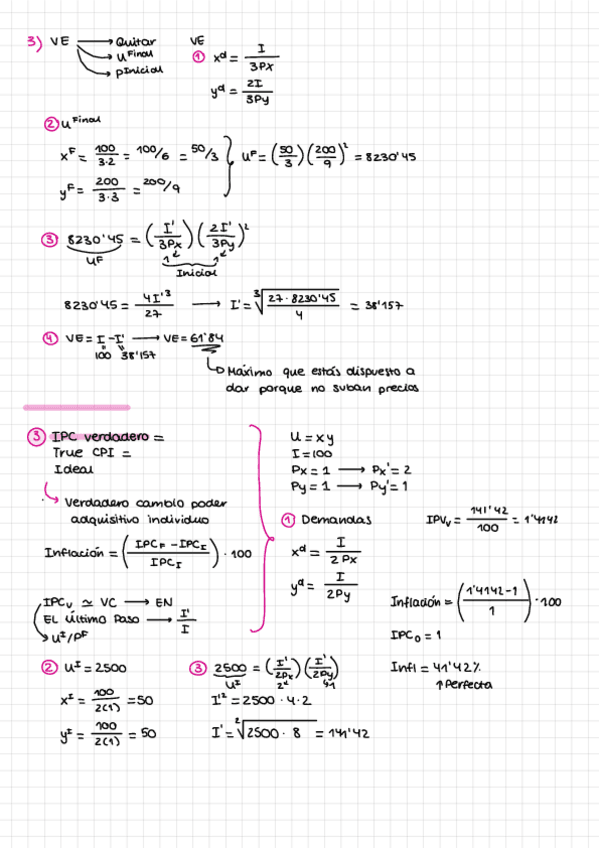 3) VE → Quitar
→ U Final
→ P Inicial
VE
① x^d = I / 3Px
y^d = 2I / 3Py
② U Final
x^F = 100 / 3·2 = 100/6 = 50/3
y^F = 200 / 3·3 = 200/9
U^F = (50/3)(200/9)^2 = 8230'45
③ 8230'45 = (I' / 3Px)(2I' / 3Py)^2
UF 1 1
Inicial
8230'45 = 4I'^3 / 27 → I' = ∛(27·8230'45 / 4) = 38'157
④ VE = I - I' → VE = 61'84
100 38'157
Máximo que estás dispuesto a
dar porque no suban precios
③ IPC verdadero =
True CPI =
Ideal
Verdadero cambio poder
adquisitivo individuo
Inflación = (IPC_F - IPC_I / IPC_I) · 100
IPC_V ≃ VC → EN
EL Último Paso → I' / I
U^I/P^F
U = xy
I = 100
Px = 1 → Px' = 2
Py = 1 → Py' = 1
① Demandas
x^d = I / 2Px
y^d = I / 2Py
IPV_v = 141'42 / 100 = 1'4142
Inflación = (1'4142 - 1 / 1) · 100
IPC_0 = 1
Infl = 41'42%
↑ Perfecta
② U^I = 2500
x^I = 100 / 2(1) = 50
y^I = 100 / 2(1) = 50
③ 2500 = (I' / 2Px)(I' / 2Py)
U^I 2 1
I'^2 = 2500 · 4 · 2
I' = ²√(2500 · 8) = 141'42